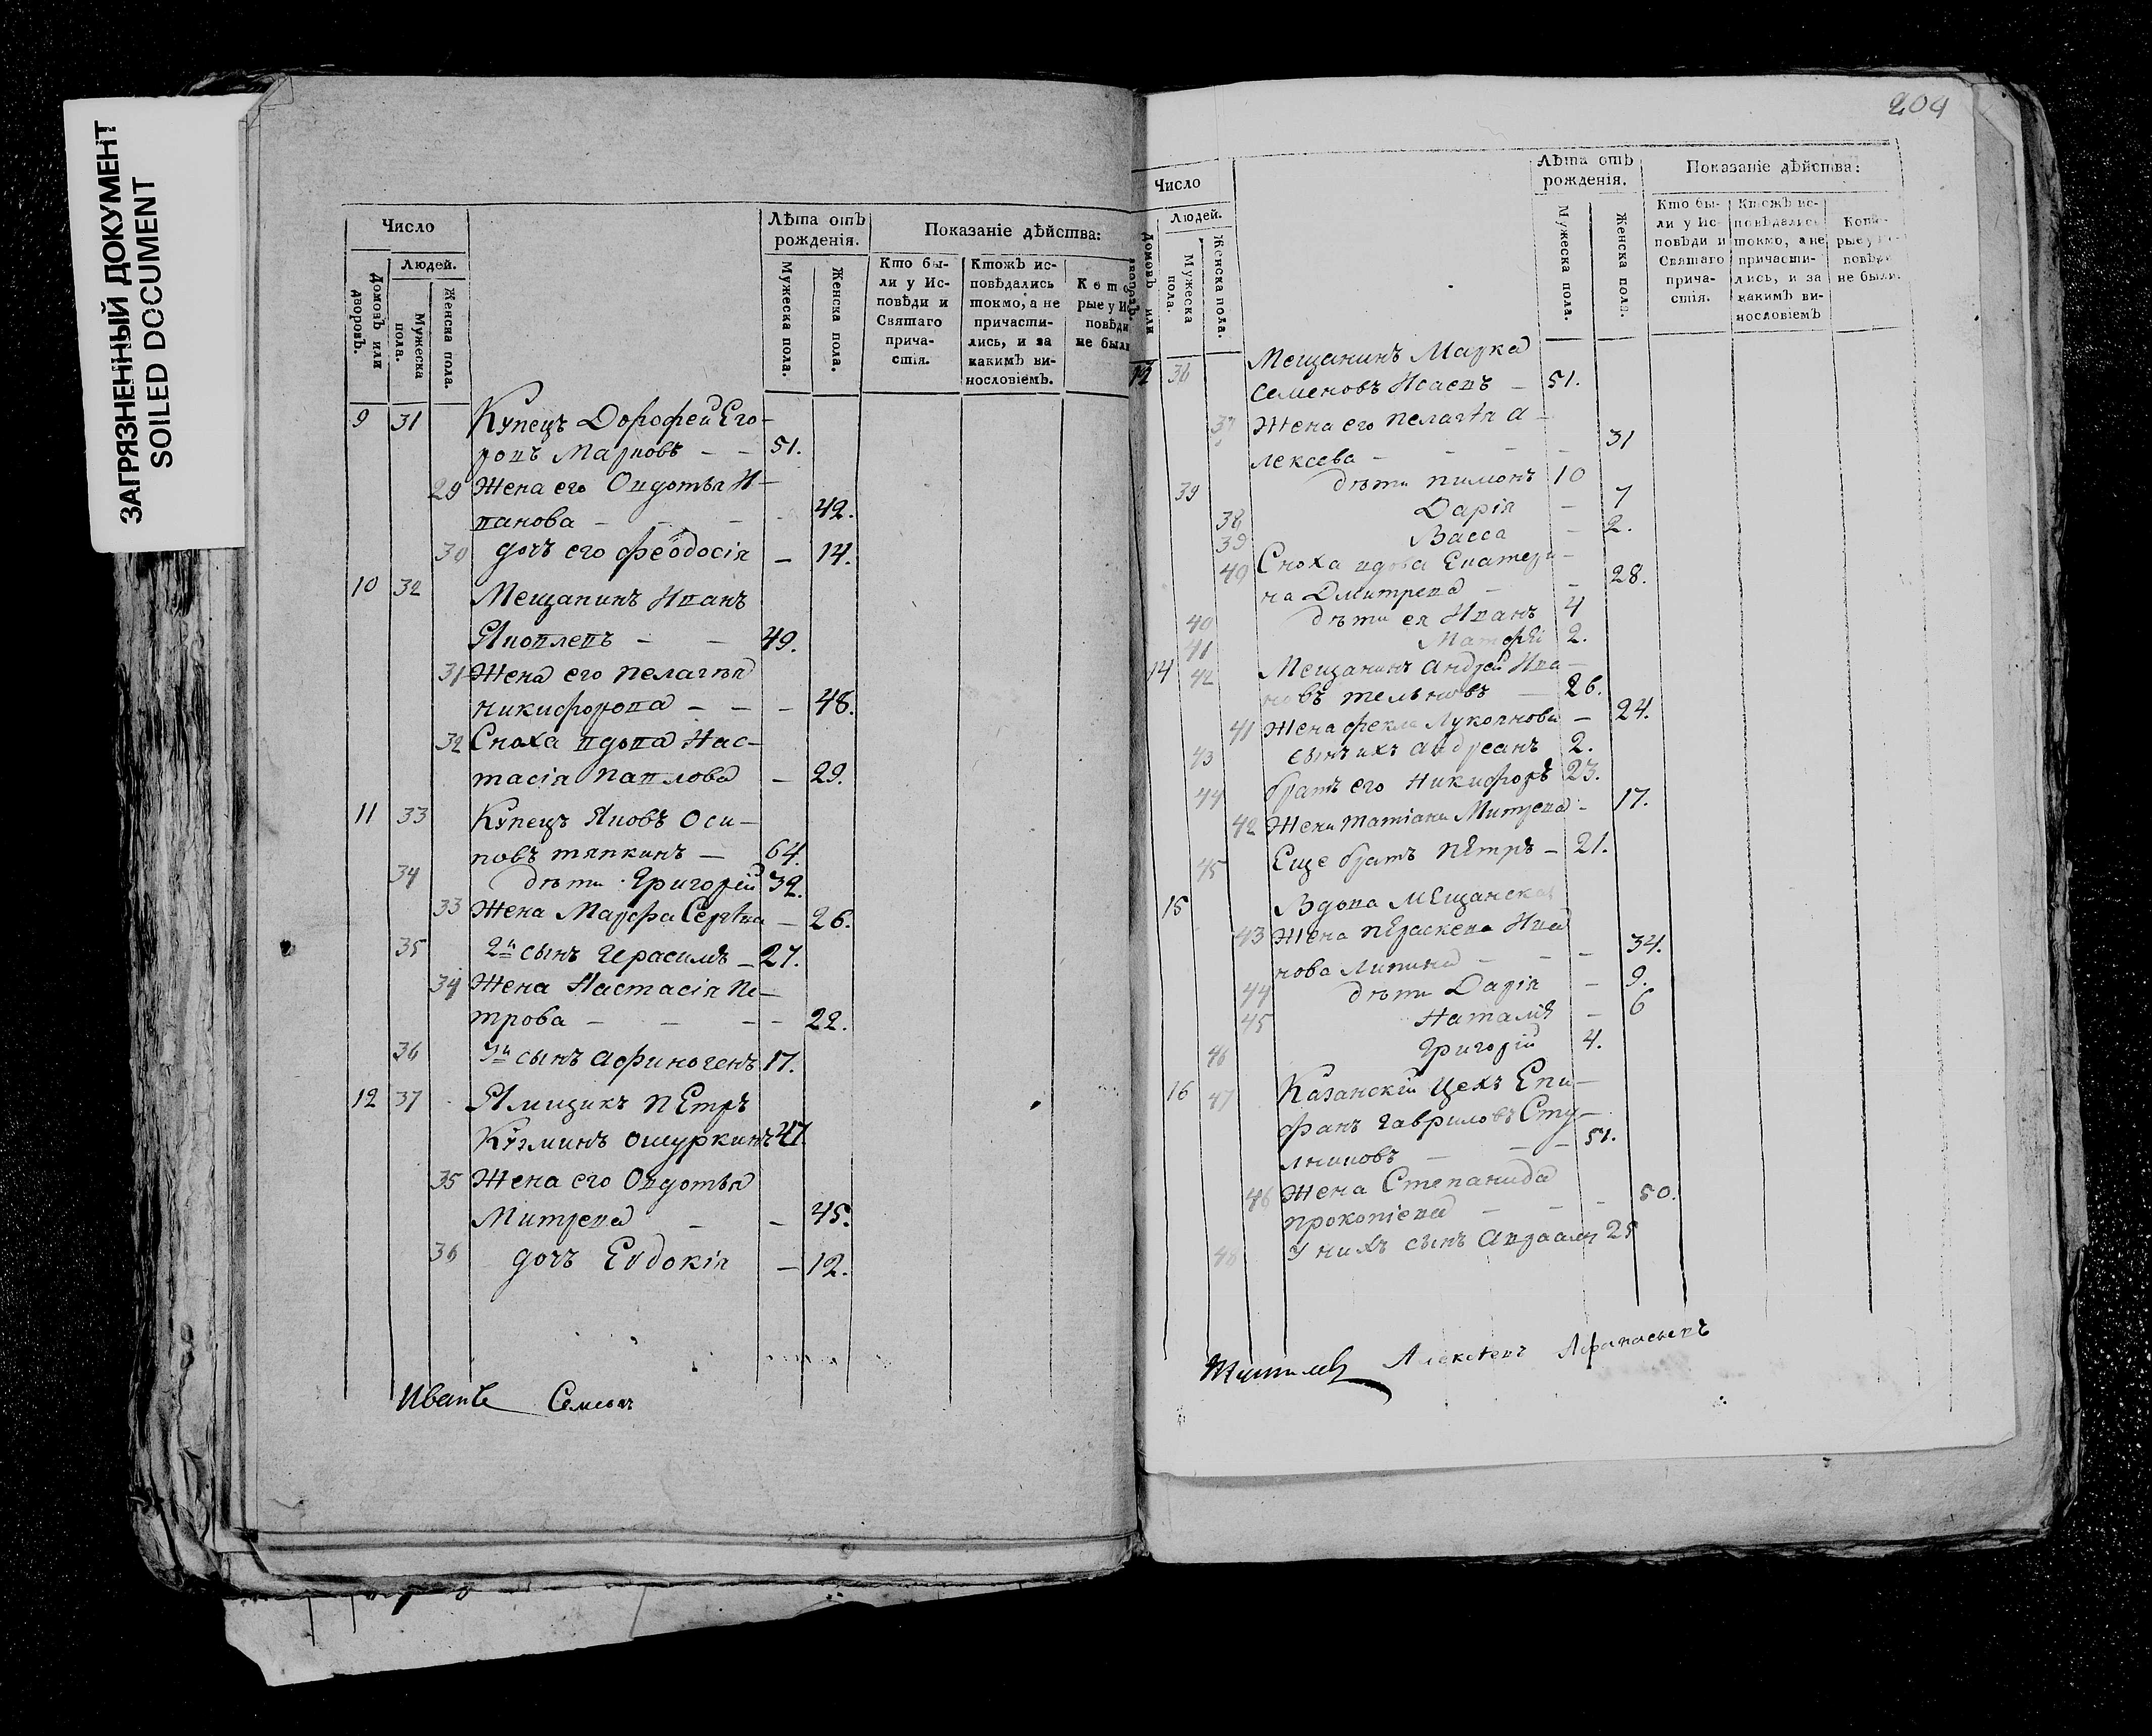 ЗАГРЯЗНЕННЫЙ ДОКУМЕНТ
SOILED DOCUMENT
Число
Людей.
Домовъ или дворовъ.
Мужеска пола.
Женска пола.
Лѣта отъ рожденія.
Мужеска пола.
Женска пола.
Показаніе дѣйства:
Кто бы-
ли у Ис-
повѣди и
Святаго
прича-
стія.
Ктожъ ис-
повѣдались
токмо, а не
причасти-
лись, и за
какимъ ви-
нословіемъ.
Кото
рые у Ис
повѣди
не были
9 31 Купецъ Дорофей Его-
ровъ Марковъ – – 51.
29 Жена его Овдотья И-
ванова – – – 42.
30 дочъ его феодосія – 14.
10 32 Мещанинъ Иванъ
Яковлевъ – – 49.
31 Жена его пелагѣя
никифорова – – – 48.
32 Сноха вдова Нас-
тасія павлова – 29.
11 33 Купецъ Яковъ Оси-
повъ тяпкинъ – 64.
34 дѣти Григорей 32.
33 Жена Марфа Сергѣва – 26.
35 2й сынъ Герасимъ – 27.
34 Жена Настасія Пе-
трова – – – 22.
36 3й сынъ афиногенъ 17.
12 37 Ямщикъ пЕтръ
Кузминъ ошуркинъ 47.
35 Жена его Овдотья
Митрева – – 45.
36 дочъ Евдокія – 12.
Иванъ Семеовъ
204
Число
Людей.
Домовъ или дворовъ.
Мужеска пола.
Женска пола.
Лѣта отъ
рожденія.
Мужеска пола.
Женска пола.
Показаніе дѣйства:
Кто бы-
ли у Ис-
повѣди и
Святаго
прича-
стія.
Ктожъ ис-
повѣдались
токмо, а не
причасти-
лись, и за
какимъ ви-
нословіемъ
Кото-
рые у Ис-
повѣди
не были.
38 Мещанинъ Марка
Семеновъ Исаевъ – 51.
37 Жена его пелагѣя а-
лексева – – – 31
39 дѣти пимонъ 10
38 Дарія – 7
39 Васса – 2.
40 Сноха вдова Екатери-
на Дмитрева – – 28.
40 дѣти ея Иванъ 4
41 Матфѣй 2.
14 42 Мещанинъ андрей Ива-
новъ тельновъ – 26.
41 Жена фекла Лукоянова – 24.
43 сынъ ихъ андреанъ 2.
44 братъ его Никифоръ 23.
42 Жена татіана Митрева – 17.
45 Еще братъ пЕтръ – 21.
15 Вдова мЕщанская
43 Жена пЕраскева Ива
нова Липина – – – 34.
44 дѣти Дарія – 9.
45 Наталія – 6
46 Григорій 4.
16 47 Казанскій цехъ Епи-
фанъ гавриловъ Сту-
– – 51.
46 Жена Степанида
прокопіева – – – 50.
48 У нихъ сынъ авраамъ 25
Алексѣевъ Афанасьевъ